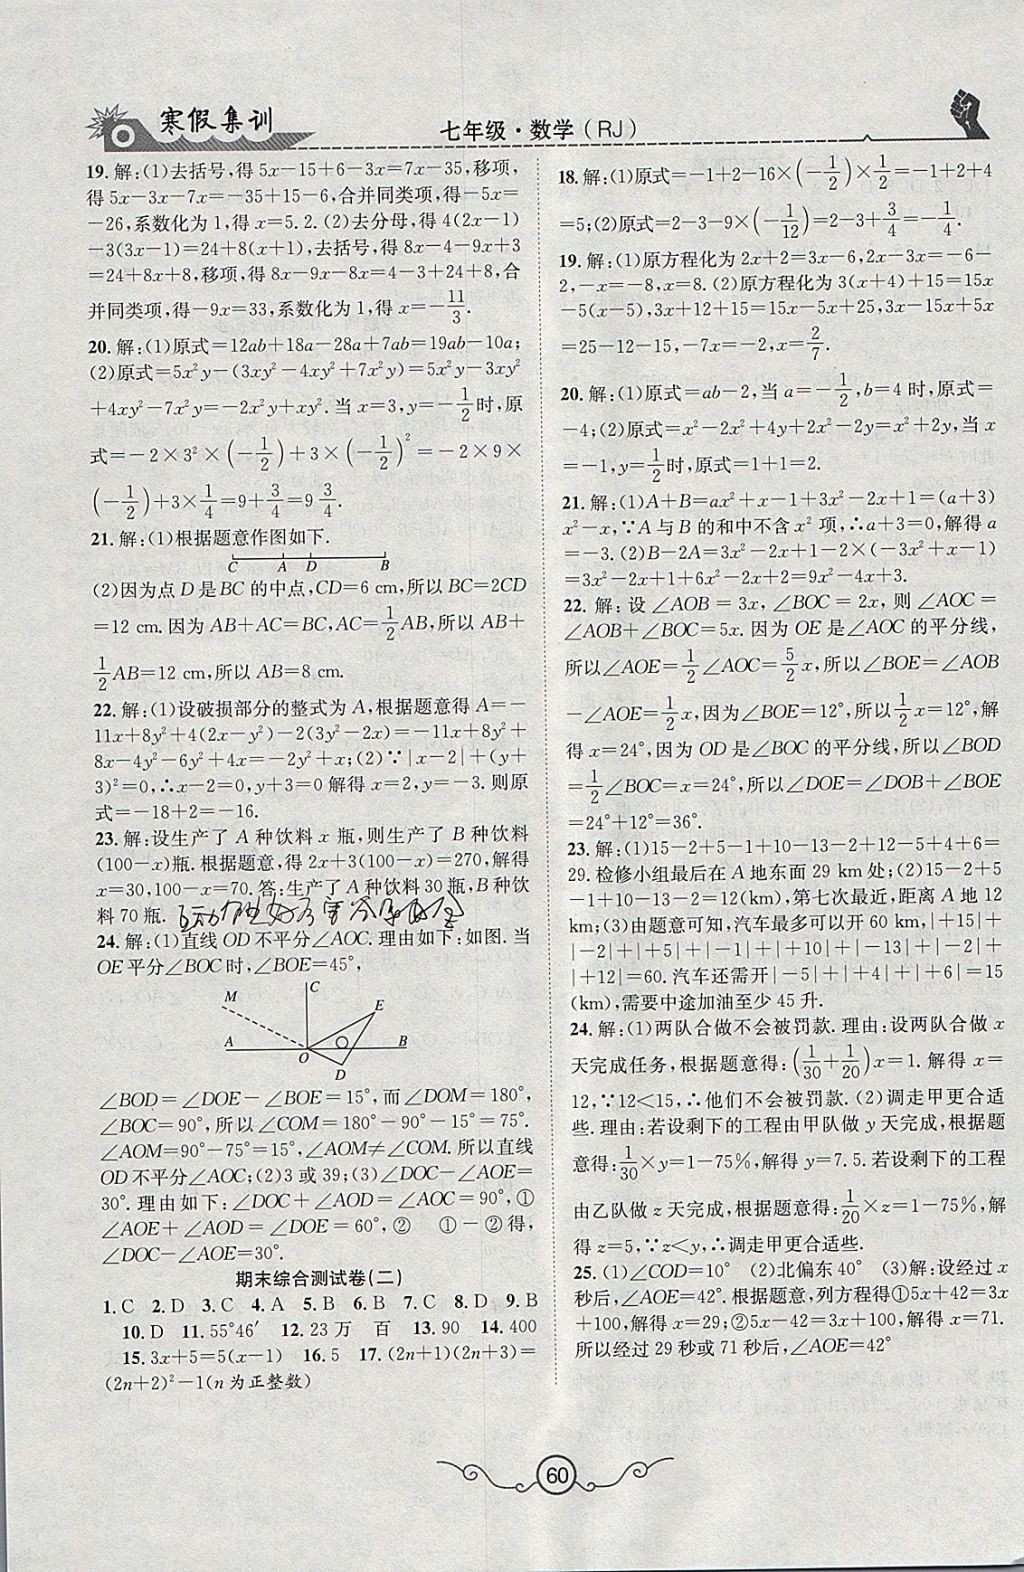 寒假集训
七年级·数学(RJ)
19.解:(1)去括号,得5x-15+6-3x=7x-35,移项,
得5x-3x-7x=-35+15-6,合并同类项,得-5x=
-26,系数化为1,得x=5.2.(2)去分母,得4(2x-1)
-3(3x-1)=24+8(x+1),去括号,得8x-4-9x+3
=24+8x+8,移项,得8x-9x-8x=4-3+24+8,合
并同类项,得-9x=33,系数化为1,得x=-11/3.
20.解:(1)原式=12ab+18a-28a+7ab=19ab-10a;
(2)原式=5x²y-(3xy²-4xy²+7x²y)=5x²y-3xy²
+4xy²-7x²y=-2x²y+xy².当x=3,y=-1/2时,原
式=-2×3²×(-1/2)+3×(-1/2)²=-2×9×
(-1/2)+3×1/4=9+3/4=9 3/4.
21.解:(1)根据题意作图如下.
C A D B
(2)因为点D是BC的中点,CD=6 cm,所以BC=2CD
=12 cm.因为AB+AC=BC,AC=1/2AB,所以AB+
1/2AB=12 cm,所以AB=8 cm.
22.解:(1)设破损部分的整式为A,根据题意得A=-
11x+8y²+4(2x-y²)-2(3y²-2x)=-11x+8y²+
8x-4y²-6y²+4x=-2y²+x;(2)∵|x-2|+(y+
3)²=0,∴x-2=0,y+3=0解得x=2,y=-3.则原
式=-18+2=-16.
23.解:设生产了A种饮料x瓶,则生产了B种饮料
(100-x)瓶.根据题意,得2x+3(100-x)=270,解得
x=30,100-x=70.答:生产了A种饮料30瓶,B种饮
料70瓶.
24.解:(1)直线OD不平分∠AOC.理由如下:如图.当
OE平分∠BOC时,∠BOE=45°,
M C E
A O B
D
∠BOD=∠DOE-∠BOE=15°,而∠DOM=180°,
∠BOC=90°,所以∠COM=180°-90°-15°=75°.
∠AOM=90°-75°=15°,∠AOM≠∠COM.所以直线
OD不平分∠AOC;(2)3或39;(3)∠DOC-∠AOE=
30°.理由如下:∠DOC+∠AOD=∠AOC=90°,①
∠AOE+∠AOD=∠DOE=60°,② ①-②得,
∠DOC-∠AOE=30°.
期末综合测试卷(二)
1.C 2.D 3.C 4.A 5.B 6.B 7.C 8.D 9.B
10.D 11.55°46′ 12.23万 百 13.90 14.400
15.3x+5=5(x-1) 16.5 17.(2n+1)(2n+3)=
(2n+2)²-1(n为正整数)
18.解:(1)原式=-1+2-16×(-1/2)×1/2=-1+2+4
=5;(2)原式=2-3-9×(-1/12)=2-3+3/4=-1/4.
19.解:(1)原方程化为2x+2=3x-6,2x-3x=-6-
2,-x=-8,x=8.(2)原方程化为3(x+4)+15=15x
-5(x-5),3x+12+15=15x-5x+25,3x-15x+5x
=25-12-15,-7x=-2,x=2/7.
20.解:(1)原式=ab-2,当a=-1/2,b=4时,原式=
-4;(2)原式=x²-2x²+4y+2x²-2y=x²+2y,当x
=-1,y=1/2时,原式=1+1=2.
21.解:(1)A+B=ax²+x-1+3x²-2x+1=(a+3)
x²-x,∵A与B的和中不含x²项,∴a+3=0,解得a
=-3.(2)B-2A=3x²-2x+1-2×(-3x²+x-1)
=3x²-2x+1+6x²-2x+2=9x²-4x+3.
22.解:设∠AOB=3x,∠BOC=2x,则∠AOC=
∠AOB+∠BOC=5x.因为OE是∠AOC的平分线,
所以∠AOE=1/2∠AOC=5/2x,所以∠BOE=∠AOB
-∠AOE=1/2x,因为∠BOE=12°,所以1/2x=12°,解
得x=24°,因为OD是∠BOC的平分线,所以∠BOD
=1/2∠BOC=x=24°,所以∠DOE=∠DOB+∠BOE
=24°+12°=36°.
23.解:(1)15-2+5-1+10-13-2+12-5+4+6=
29.检修小组最后在A地东面29 km处;(2)15-2+5
-1+10-13-2=12(km),第七次最近,距离A地12
km;(3)由题意可知,汽车最多可以开60 km,|+15|+
|-2|+|+5|+|-1|+|+10|+|-13|+|-2|+
|+12|=60.汽车还需开|-5|+|+4|+|+6|=15
(km),需要中途加油至少45升.
24.解:(1)两队合做不会被罚款.理由:设两队合做x
天完成任务,根据题意得:(1/30+1/20)x=1.解得x=
12,∵12<15,∴他们不会被罚款.(2)调走甲更合适
些.理由:若设剩下的工程由甲队做y天完成,根据题
意得:1/30×y=1-75%,解得y=7.5.若设剩下的工程
由乙队做z天完成,根据题意得:1/20×z=1-75%,解
得z=5,∵z<y,∴调走甲更合适些.
25.(1)∠COD=10° (2)北偏东40° (3)解:设经过x
秒后,∠AOE=42°.根据题意,列方程得①5x+42=3x+
100,解得x=29;②5x-42=3x+100,解得x=71.
所以经过29秒或71秒后,∠AOE=42°
60